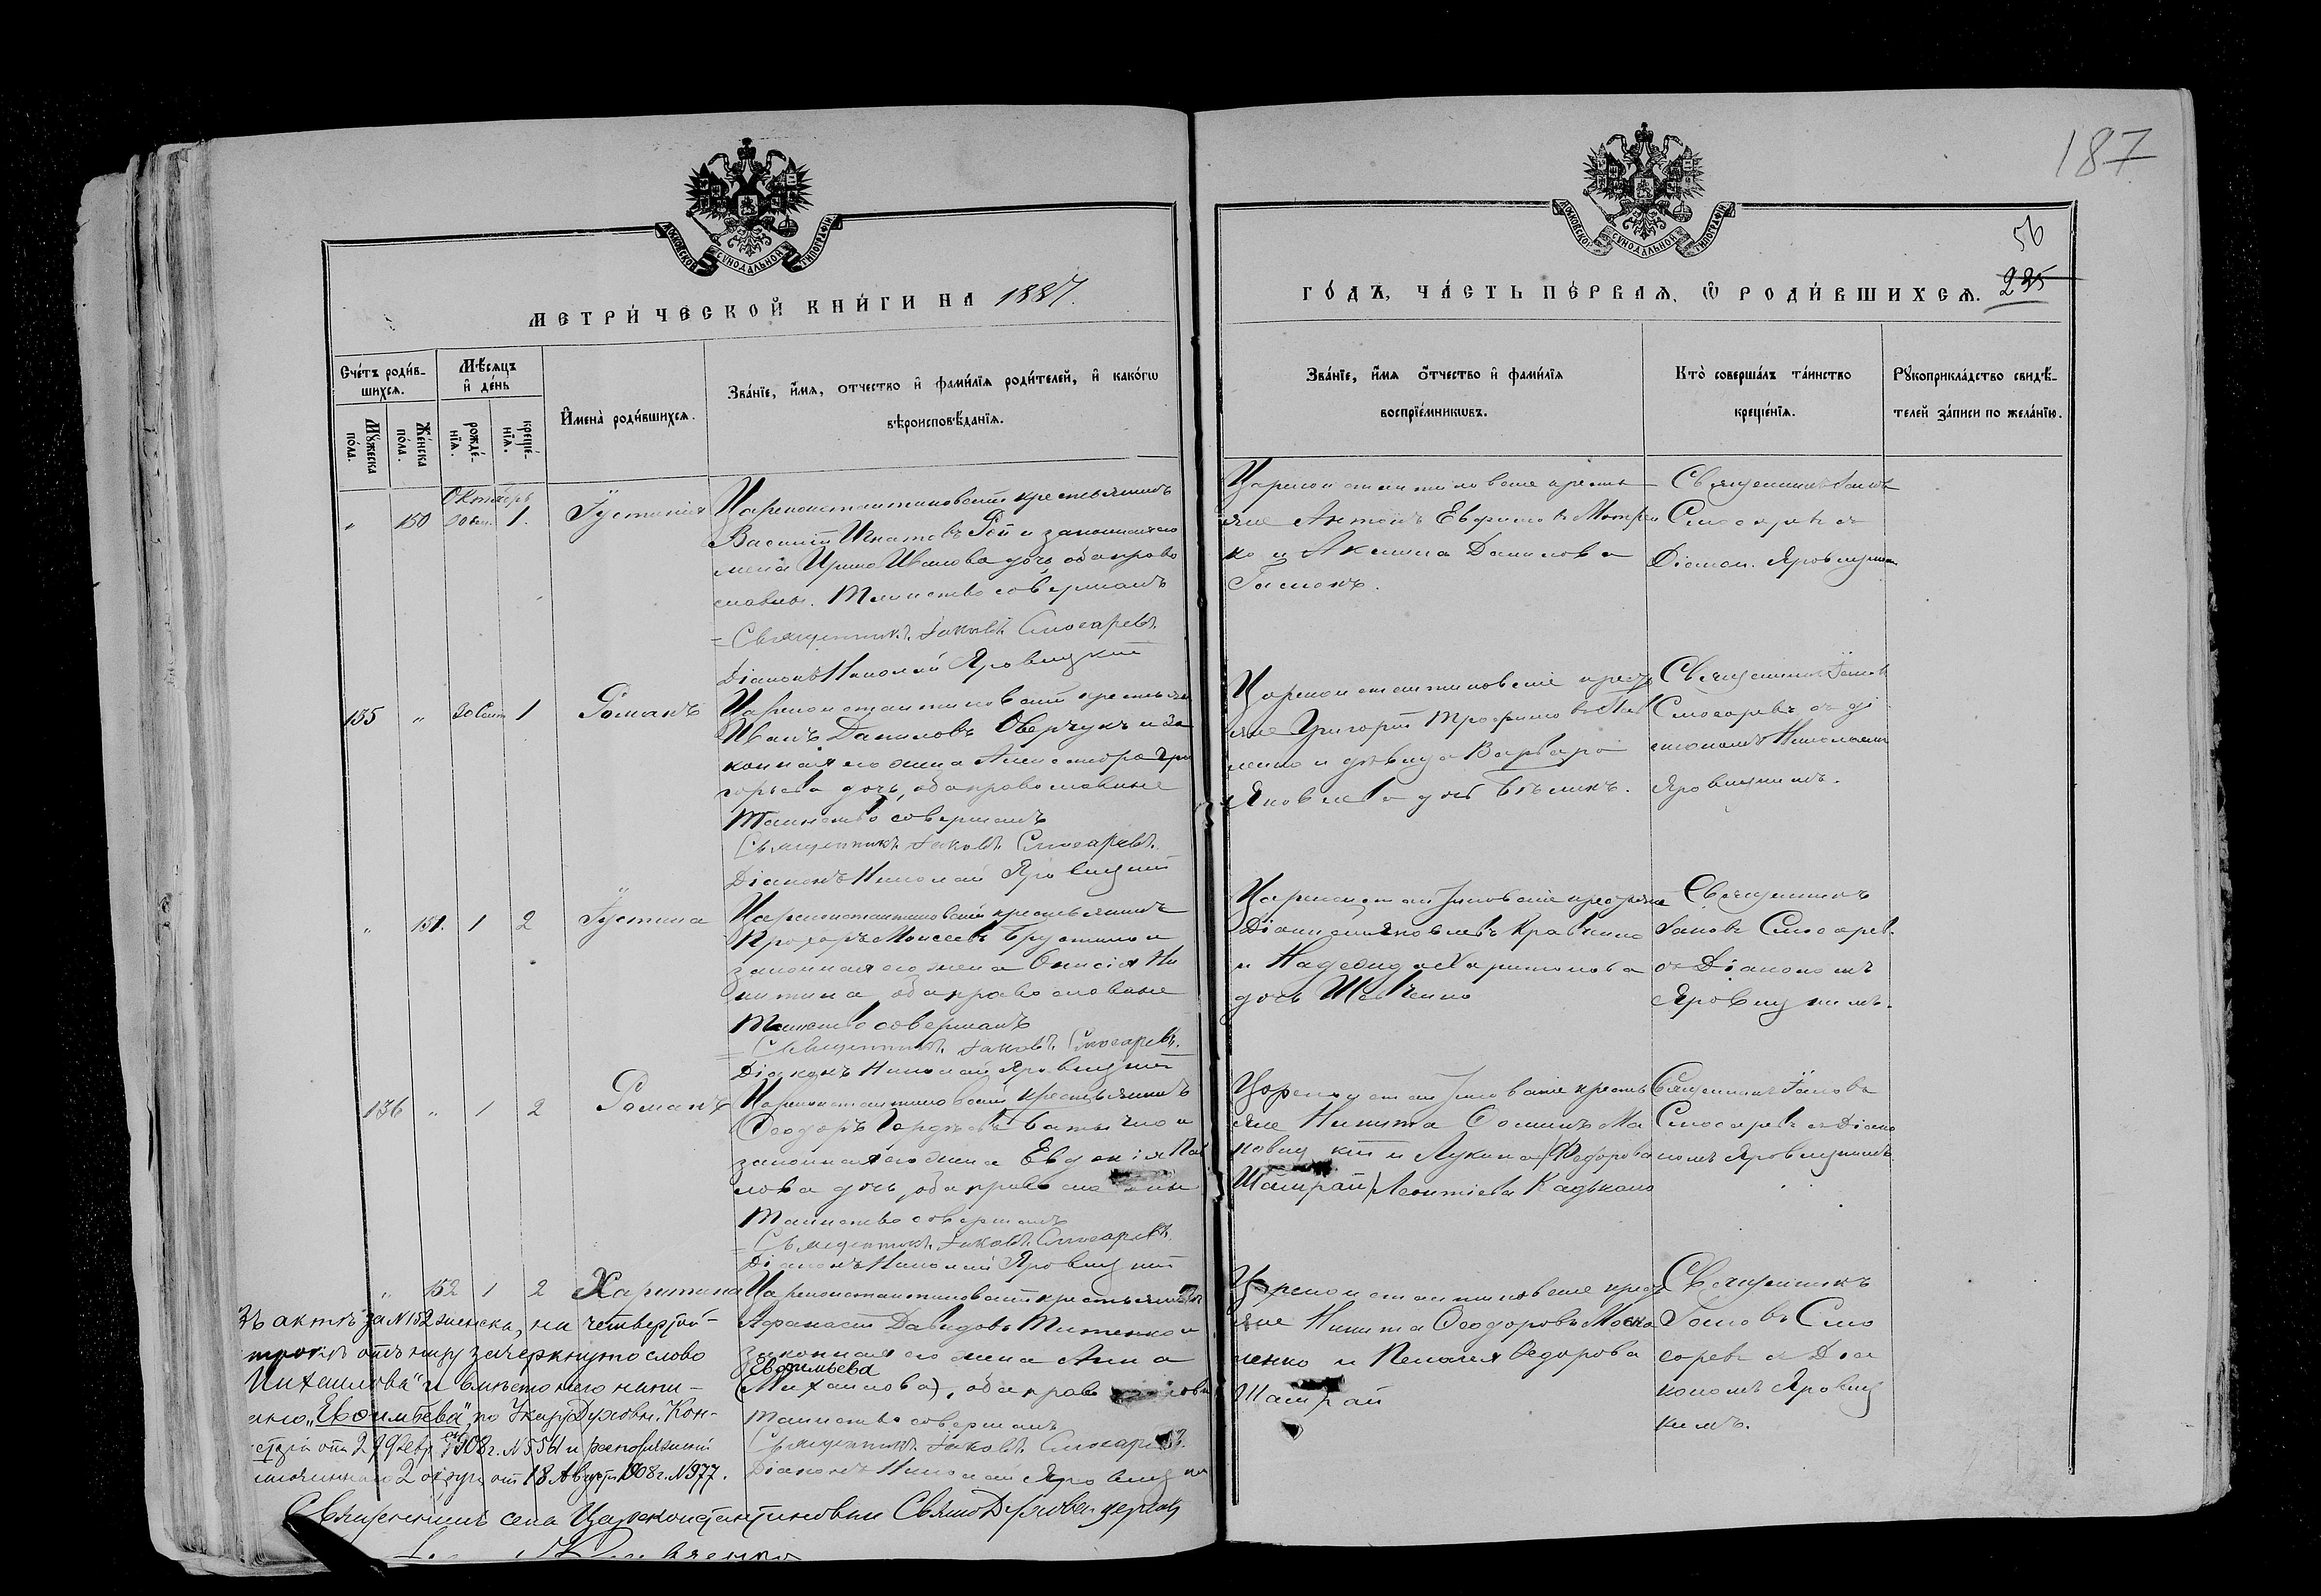 187
56
225
МОСКОВСКОЙ СѴНОДАЛЬНОЙ ТИПОГРАФІИ
МОСКОВСКОЙ СѴНОДАЛЬНОЙ ТИПОГРАФІИ
МЕТРИ́ЧЕСКОЙ КНИ́ГИ НА 1887.
ГО́ДЪ, ЧА́СТЬ ПЕ́РВАѦ, Ѡ҆ РОДИ́ВШИХСѦ.
Сче́тъ роди́в-
шихся.
Мꙋ́жеска по́ла.
Же́нска по́ла.
Мѣ́сяцъ и҆ де́нь
рожде́-
нїя.
креще́-
нїя.
И҆мена̀ роди́вшихся.
Зва́нїе, и҆́мя, о́тчество и҆ фами́лїя роди́телей, и҆ како́гѡ
вѣроисповѣ́данїя.
Зва́нїе, и҆́мя о҆́тчество и҆ фами́лїя
воспрїе́мникѡвъ.
Кто̀ соверша́лъ та́инство
креще́нїя.
Рꙋкоприкла́дство свидѣ́-
телей за́писи по жела́нїю.
Октябрь
" 150 30 сен. 1. Іустинія
Цареконстантиновскій крестьянинъ
Василій Игнатовъ Гой и законная его
жена Ирина Иванова дочь, оба право
славны. Таинство совершалъ
Священникъ Іаковъ Слюсаревъ
Діаконъ Николай Яровицкій
Цареконстантиновскіе кресть
яне Антонъ Евфимовъ
ко и Акилина Данилова
Священникъ Іаковъ
Слюсаревъ съ
Діакон. Яровицкимъ
135 " 30 Сент 1 Романъ
Цареконстантиновскій крестьян
Иванъ Даниловъ Оверчукъ и за
конная его жена Александра Гри
горьева дочь, оба православные
Таинство совершалъ
Священникъ Іаковъ Слюсаревъ
Діаконъ Николай Яровицкій
Цареконстантиновскіе кресть
яне Григорій Трофимовъ
ненко и дѣвица Варвара
Яковлева дочь Бѣликъ.
Священникъ Іаковъ
Слюсаревъ съ ді
акономъ Николаемъ
Яровицкимъ.
" 151. 1 2 Іустина
Цареконстантиновскій крестьянинъ
Прохоръ Моисеевъ и
законная его жена Онисія Ни
китина, оба православные
Таинство совершалъ
Священникъ Іаковъ Слюсаревъ.
Діаконъ Николай Яровицкій
Цареконстантиновскіе крестьяне
Діонисій Яковлевъ Кравченко
и Надежда Харитонова
дочь Шевченко
Священникъ
Іаковъ Слюсарев.
съ Діакономъ
Яровицкимъ.
136 " 1 2 Романъ
Цареконстантиновскій крестьянинъ
Ѳеодоръ Гордѣевъ и
законная его жена Евдокія Пав
лова дочь, оба православны
Таинство совершалъ
Священникъ Іаковъ Слюсаревъ
Діаконъ Николай Яровицкій
Цареконстантиновскіе кресть
яне Никита Ѳоминъ Ма
новицкій и Лукина /Ѳедорова
Шамрай/ Леонтіева
Священникъ Іаковъ
Слюсаревъ съ Діако
номъ Яровицкимъ.
" 152 1 2 Харитина
Цареконстантиновскій крестьянинъ
Афанасій Давидовъ Титенко и
законная его жена Анна
Евфимьева
(Михаилова), оба православны
Таинство совершалъ
Священникъ Іаковъ Слюсаревъ
Діаконъ Николай Яровицкій
Цареконстантиновскіе кресть
яне Никита Ѳеодоровъ Моска
ленко и Пелагея Ѳедорова
Шамрай
Священникъ
Іаковъ Слю
саревъ съ Діа
кономъ Яровиц
кимъ.
Въ актѣ за №152 женска, на четвертой
строкѣ отъ низу зачеркнуто слово
"Михаилова" и вмѣсто него напи-
сано "Евфимьева", по Указу Духовн. Кон-
систоріи отъ 27 Февр. 1908 г. № 5541 и распоряженій
благочиннаго 2 округа от 18 Августа 1908 г. № 977.
Священникъ села Цареконстантиновки Свято Духовск. церкви